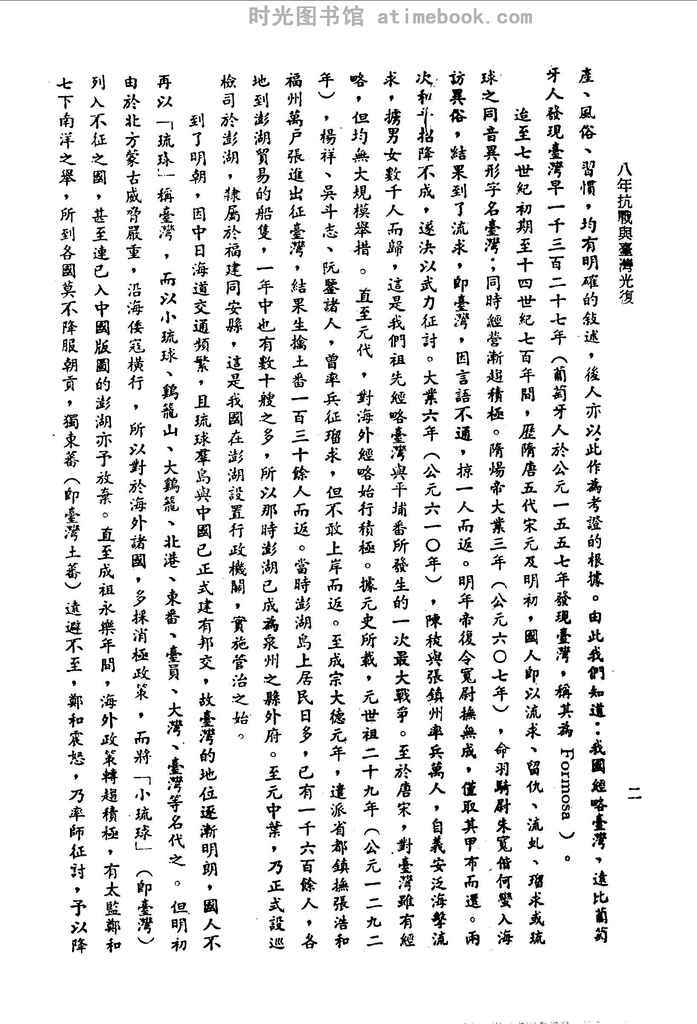 时光图书馆 atimebook.com
八年抗戰與臺灣光復
二
產、風俗、習慣，均有明確的敘述，後人亦以此作為考證的根據。由此我們知道：我國經略臺灣，遠比葡萄
牙人發現臺灣早一千三百二十七年（葡萄牙人於公元一五五七年發現臺灣，稱其為 Formosa）。
迨至七世紀初期至十四世紀七百年間，歷隋唐五代宋元及明初，國人即以流求、留仇、流虬、瑠求或琉
球之同音異形字名臺灣；同時經營漸趨積極。隋煬帝大業三年（公元六〇七年），命羽騎尉朱寬偕何蠻入海
訪異俗，結果到了流求，即臺灣，因言語不通，掠一人而返。明年帝復令寬尉撫無成，僅取其甲布而還。兩
次和斗招降不成，遂決以武力征討。大業六年（公元六一〇年），陳稜與張鎮州率兵萬人，自義安泛海擊流
求，擄男女數千人而歸，這是我們祖先經略臺灣與平埔番所發生的一次最大戰爭。至於唐宋，對臺灣雖有經
略，但均無大規模舉措。直至元代，對海外經略始行積極。據元史所載，元世祖二十九年（公元一二九二
年），楊祥、吳斗志、阮鑒諸人，曾率兵征瑠求，但不敢上岸而返。至成宗大德元年，遣派省都鎮撫張浩和
福州萬戶張進出征臺灣，結果生擒土番一百三十餘人而返。當時澎湖島上居民日多，已有一千六百餘人，各
地到澎湖貿易的船隻，一年中也有數十艘之多，所以那時澎湖已成為泉州之縣外府。至元中葉，乃正式設巡
檢司於澎湖，隸屬於福建同安縣，這是我國在澎湖設置行政機關，實施管治之始。
到了明朝，因中日海道交通頻繁，且琉球羣島與中國已正式建有邦交，故臺灣的地位逐漸明朗，國人不
再以「琉球」稱臺灣，而以小琉球、鷄籠山、大鷄籠、北港、東番、臺員、大灣、臺灣等名代之。但明初
由於北方蒙古威脅嚴重，沿海倭寇橫行，所以對於海外諸國，多採消極政策，而將「小琉球」（即臺灣）
列入不征之國，甚至連已入中國版圖的澎湖亦予放棄。直至成祖永樂年間，海外政策轉趨積極，有太監鄭和
七下南洋之舉，所到各國莫不降服朝貢，獨東蕃（即臺灣土蕃）遠避不至，鄭和震怒，乃率師征討，予以降